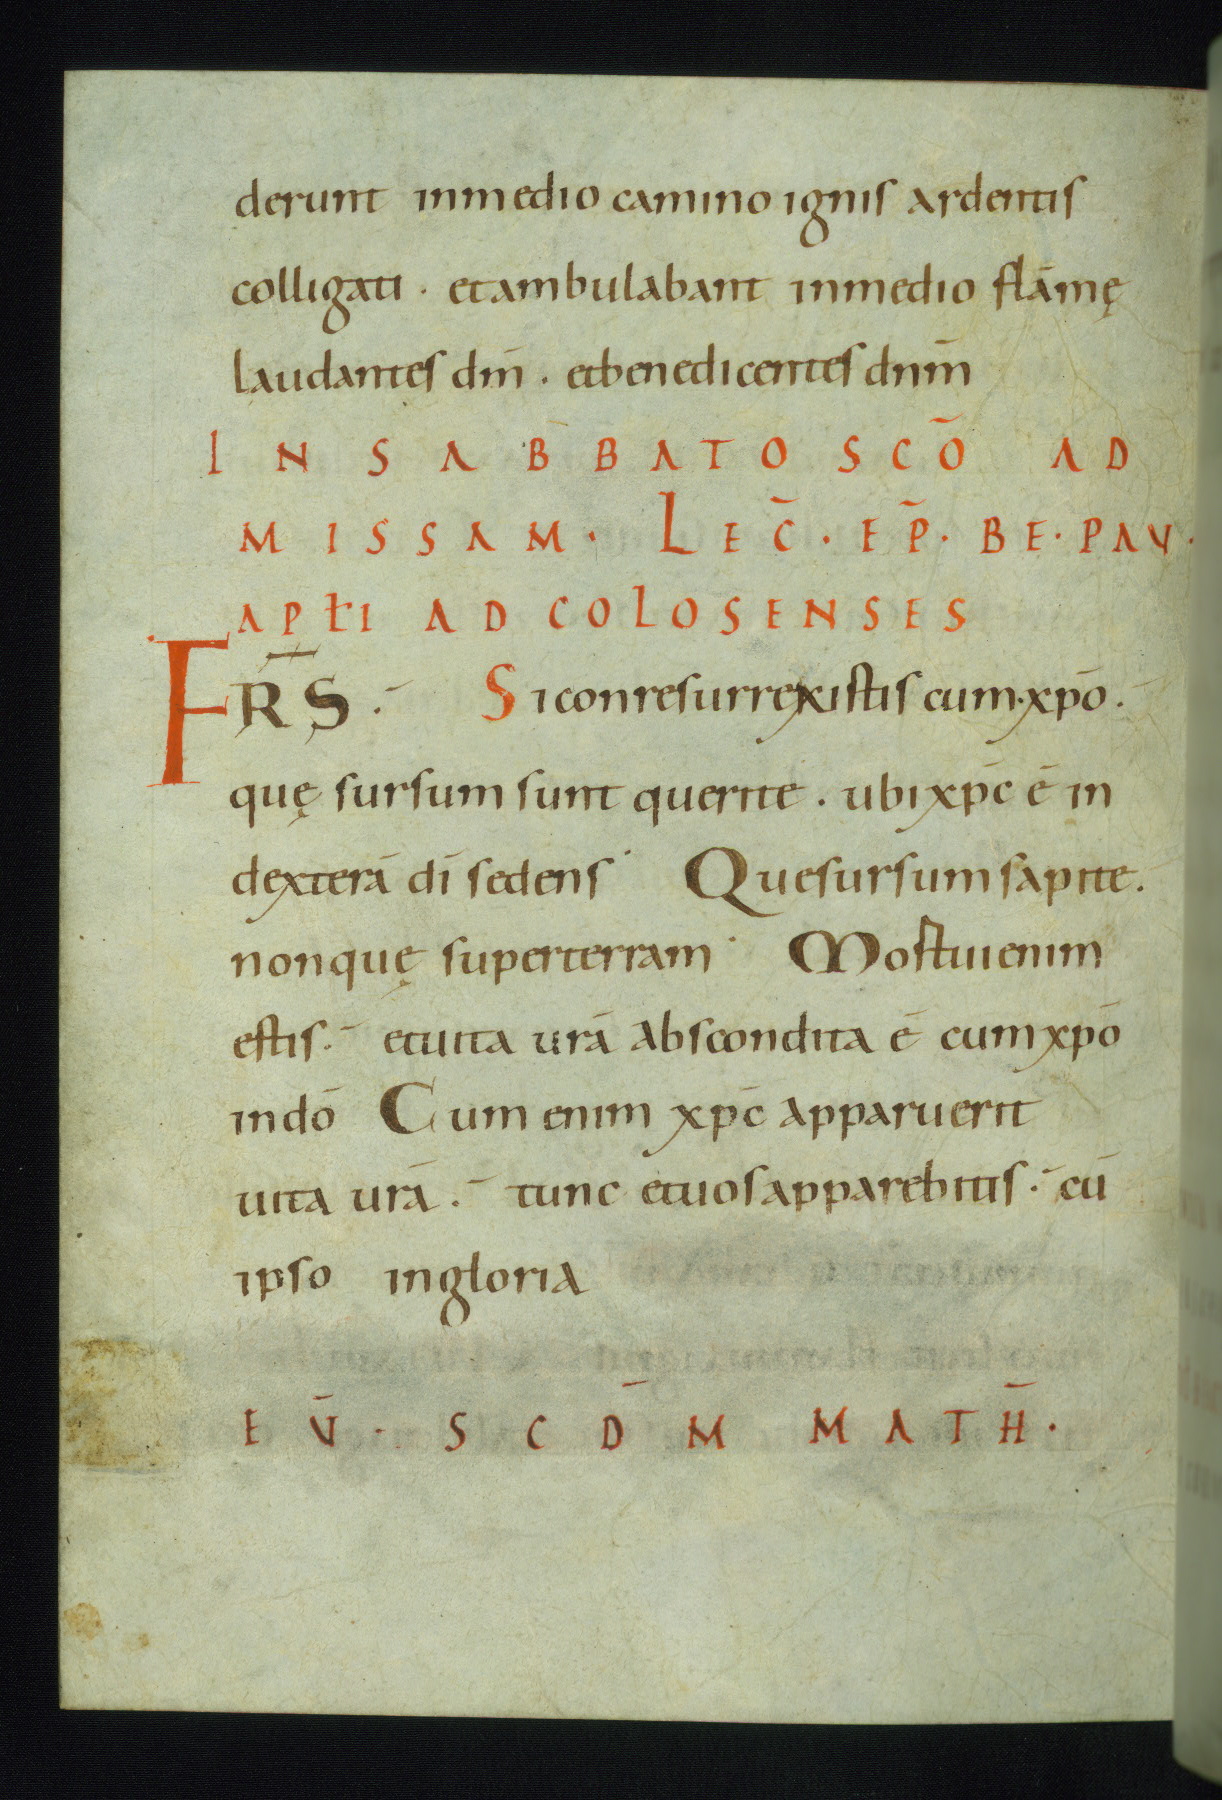 derunt inmedio camino ignis ardentis
colligati . etambulabant inmedio flāmę
laudantes dm̄ . etbenedicentes dnm̄
IN SABBATO SCŌ AD
MISSAM · LEC̄ · EP̄ · BE · PAU ·
APŁI AD COLOSENSES
FR̄S · Siconresurrexistis cum xpō .
quę sursum sunt querite . ubi xpc̄ ē in
dexterā dī sedens · Quesursum sapite .
nonquę superterram · Mostuienim
estis · etuita urā abscondita ē cum xpō
indō Cum enim xpc̄ apparuerit
uita urā · tunc etuos apparebitis · cū
ipso ingloria
EV̄ · SCD̄M MATH̄ ·